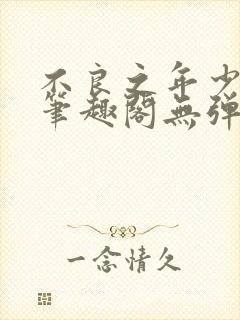 不良之年少
笔趣阁無弹
一念情久